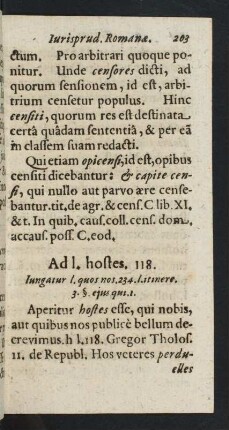 Iurisprud. Romanæ. 203
ctum. Pro arbitrari quoque po-
nitur. Unde censores dicti, ad
quorum sensionem, id est, arbi-
trium censetur populus. Hinc
censiti, quorum res est destinata
certâ quâdam sententiâ, & per eā
in classem suam redacti.
Qui etiam opicensi, id est, opibus
censiti dicebantur: & capite cen-
si, qui nullo aut parvo ære cense-
bantur. tit. de agr. & cens. C lib. XI.
& t. In quib. caus. coll. cens. dom.
accaus. poss. C. eod.
Ad l. hostes. 118.
Iungatur l. quos nos. 234. l. itinere.
3. §. ejus qui. 1.
Aperitur hostes esse, qui nobis,
aut quibus nos publicè bellum de-
crevimus. h l. 118. Gregor Tholos.
11. de Republ. Hos veteres perdu-
elles